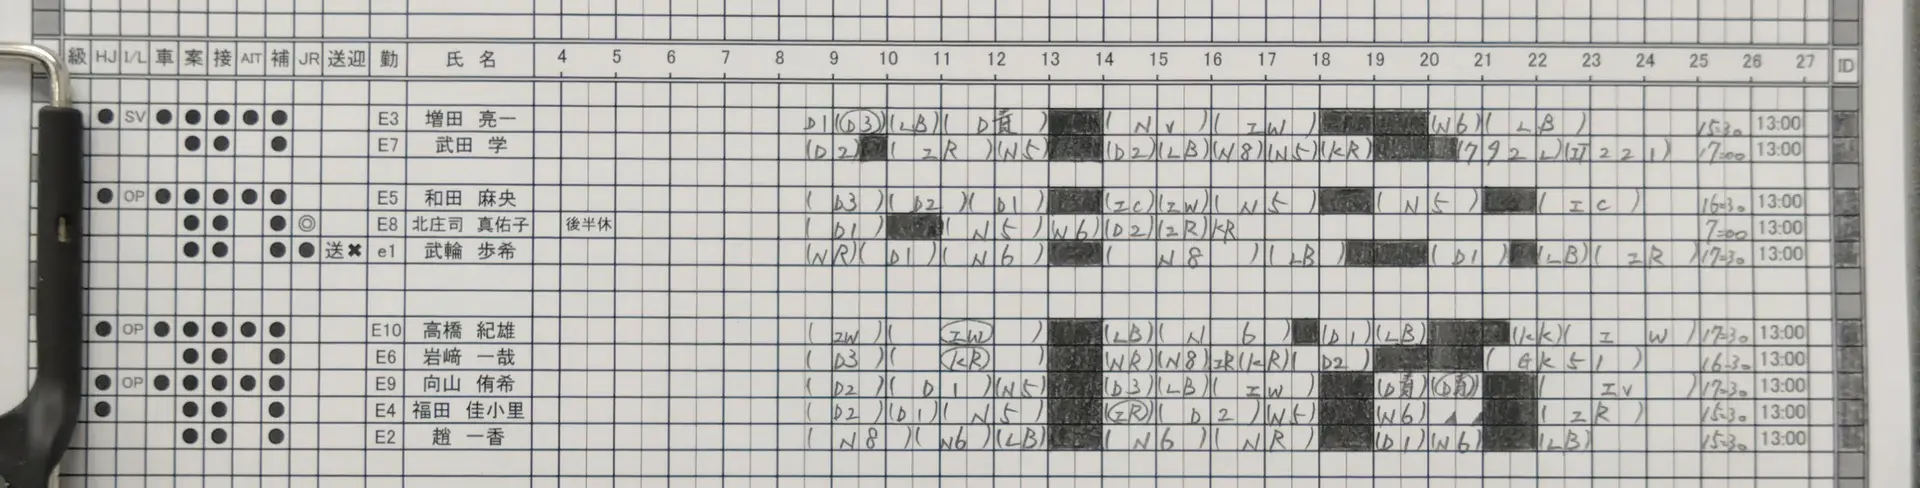 級 HJ I/L 車 案 接 AIT 補 JR 送迎 勤 氏 名 4 5 6 7 8 9 10 11 12 13 14 15 16 17 18 19 20 21 22 23 24 25 26 27 ID
● SV ● ● ● ● ● E3 増田 亮一 D1 (D3) (LB) ( D責 ) ( N V ) ( IW ) (N6) ( LB ) 15-30 13:00
● ● ● E7 武田 学 (D2) ( IR ) (N5) (D2) (LB) (N8) (N5) (KR) (792L) (II221) 17-00 13:00
● OP ● ● ● ● ● E5 和田 麻央 ( D3 ) ( D2 ) ( D1 ) (IC) (IW) ( N5 ) ( N5 ) ( IC ) 16-30 13:00
● ● ● ◎ E8 北庄司 真佑子 後半休 ( D1 ) ( N5 ) (N6) (D2) (IR) KR 7-00 13:00
● ● ● ● 送✖ e1 武輪 歩希 (NR) ( D1 ) ( N6 ) ( N8 ) (LB) (D1) (LB) ( IR ) 17-30 13:00
● OP ● ● ● ● ● E10 高橋 紀雄 ( IW ) ( IW ) (LB) ( N6 ) (D1) (LB) (KK) ( IW ) 17-30 13:00
● ● ● E6 岩﨑 一哉 ( D3 ) ( KR ) (WR) (N8) (IR) (KR) ( D2 ) ( GK51 ) 16-30 13:00
● OP ● ● ● ● ● E9 向山 侑希 ( D2 ) ( D1 ) (N5) (D3) (LB) ( IW ) (D責) (D責) ( IV ) 17-30 13:00
● ● ● ● E4 福田 佳小里 ( D2 ) (D1) ( N5 ) (IR) ( D2 ) (W5) (N6) ( IR ) 15-30 13:00
● ● ● E2 趙 一香 ( N8 ) (N6) (LB) ( N6 ) ( NR ) (D1) (N6) (LB) 15-30 13:00